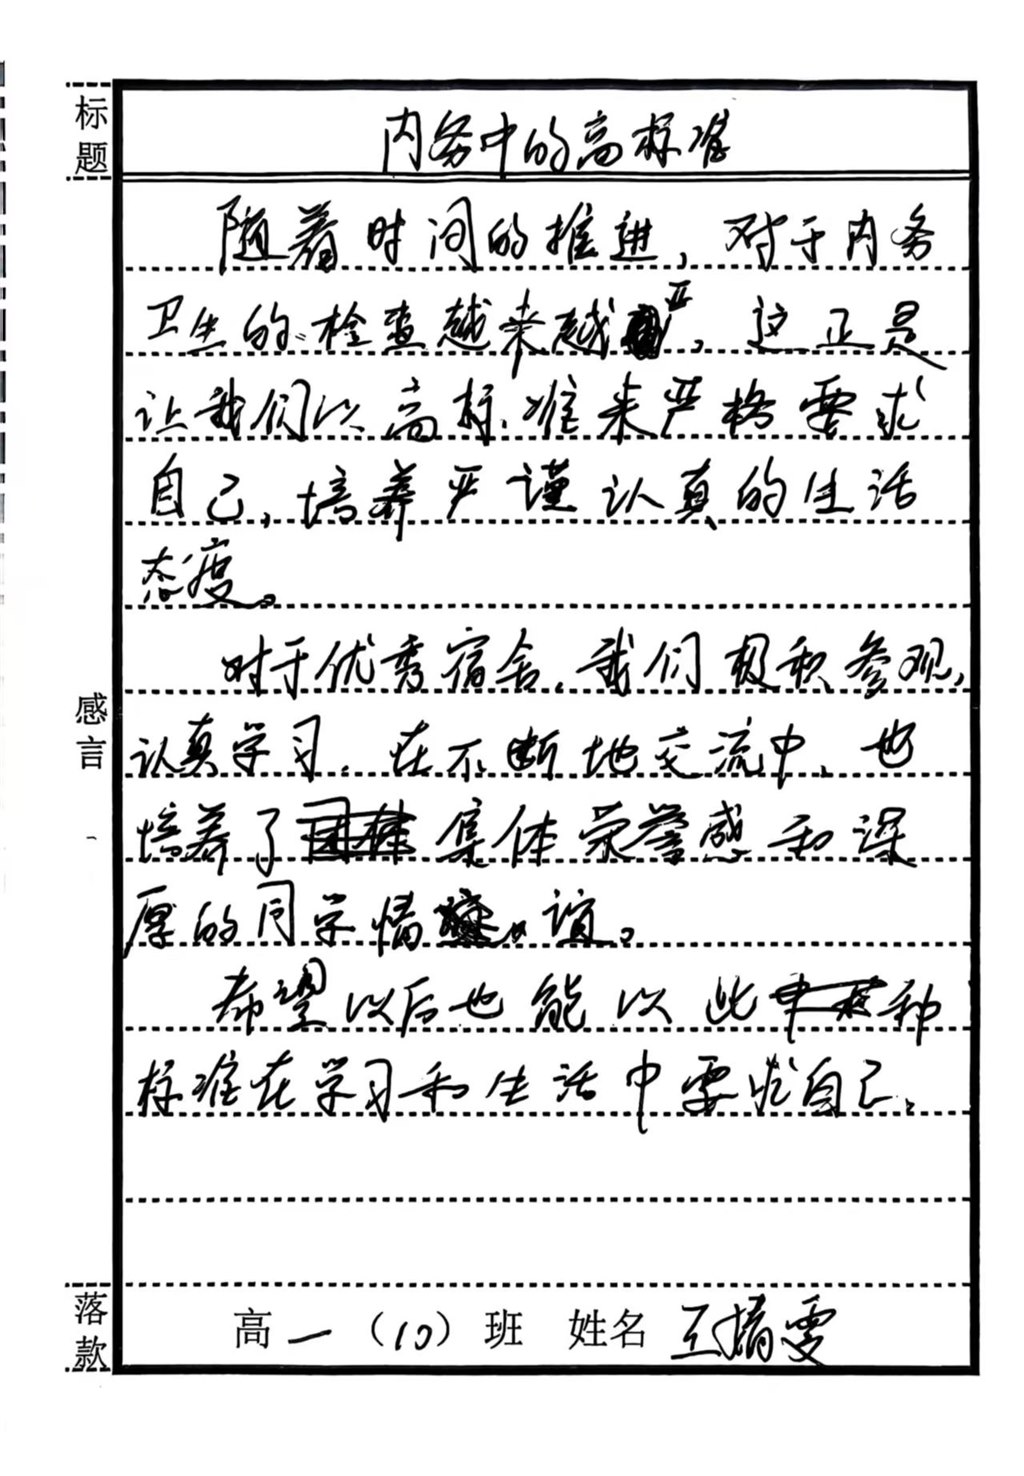 标题
内务中的高标准
随着时间的推进，对于内务
卫生的检查越来越严，这正是
让我们以高标准来严格要求
自己，培养严谨认真的生活
态度。
对于优秀宿舍，我们积极参观，
感言
认真学习，在不断地交流中，也
培养了集体荣誉感和深
厚的同学情谊。
希望以后也能以此种
标准在学习和生活中要求自己。
落款
高一（10）班 姓名 王